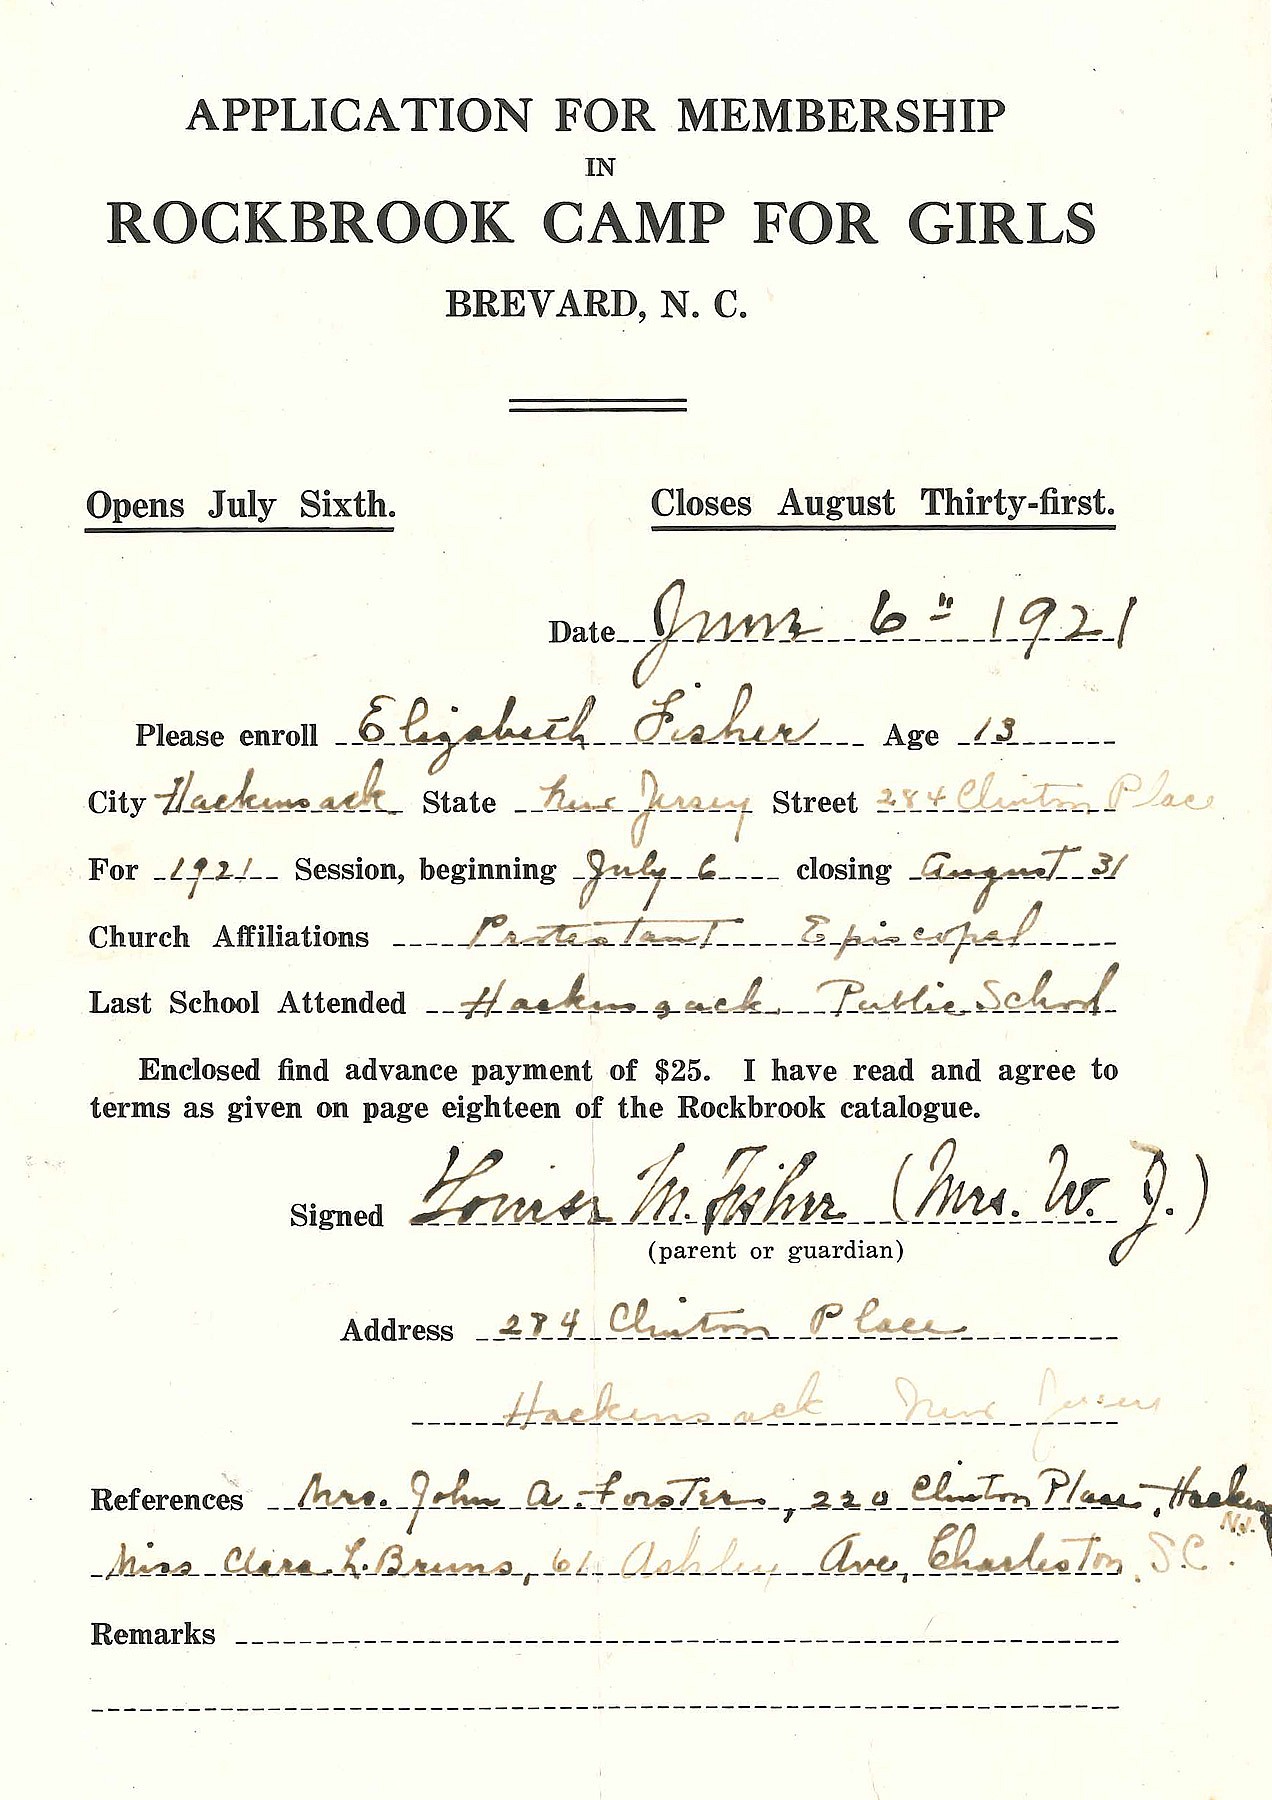 APPLICATION FOR MEMBERSHIP
IN
ROCKBROOK CAMP FOR GIRLS
BREVARD, N. C.
Opens July Sixth. Closes August Thirty-first.
Date June 6" 1921
Please enroll Elizabeth Fisher Age 13
City Hackensack State New Jersey Street 284 Clinton Place
For 1921 Session, beginning July 6 closing August 31
Church Affiliations Protestant Episcopal
Last School Attended Hackensack Public School
Enclosed find advance payment of $25. I have read and agree to
terms as given on page eighteen of the Rockbrook catalogue.
Signed Louise M. Fisher (Mrs. W. J.)
(parent or guardian)
Address 284 Clinton Place
Hackensack New Jersey
References Mrs. John A. Forster, 220 Clinton Place, Hackensack
N.J.
Miss Clara L. Bruns, 61 Ashley Ave, Charleston, S.C.
Remarks